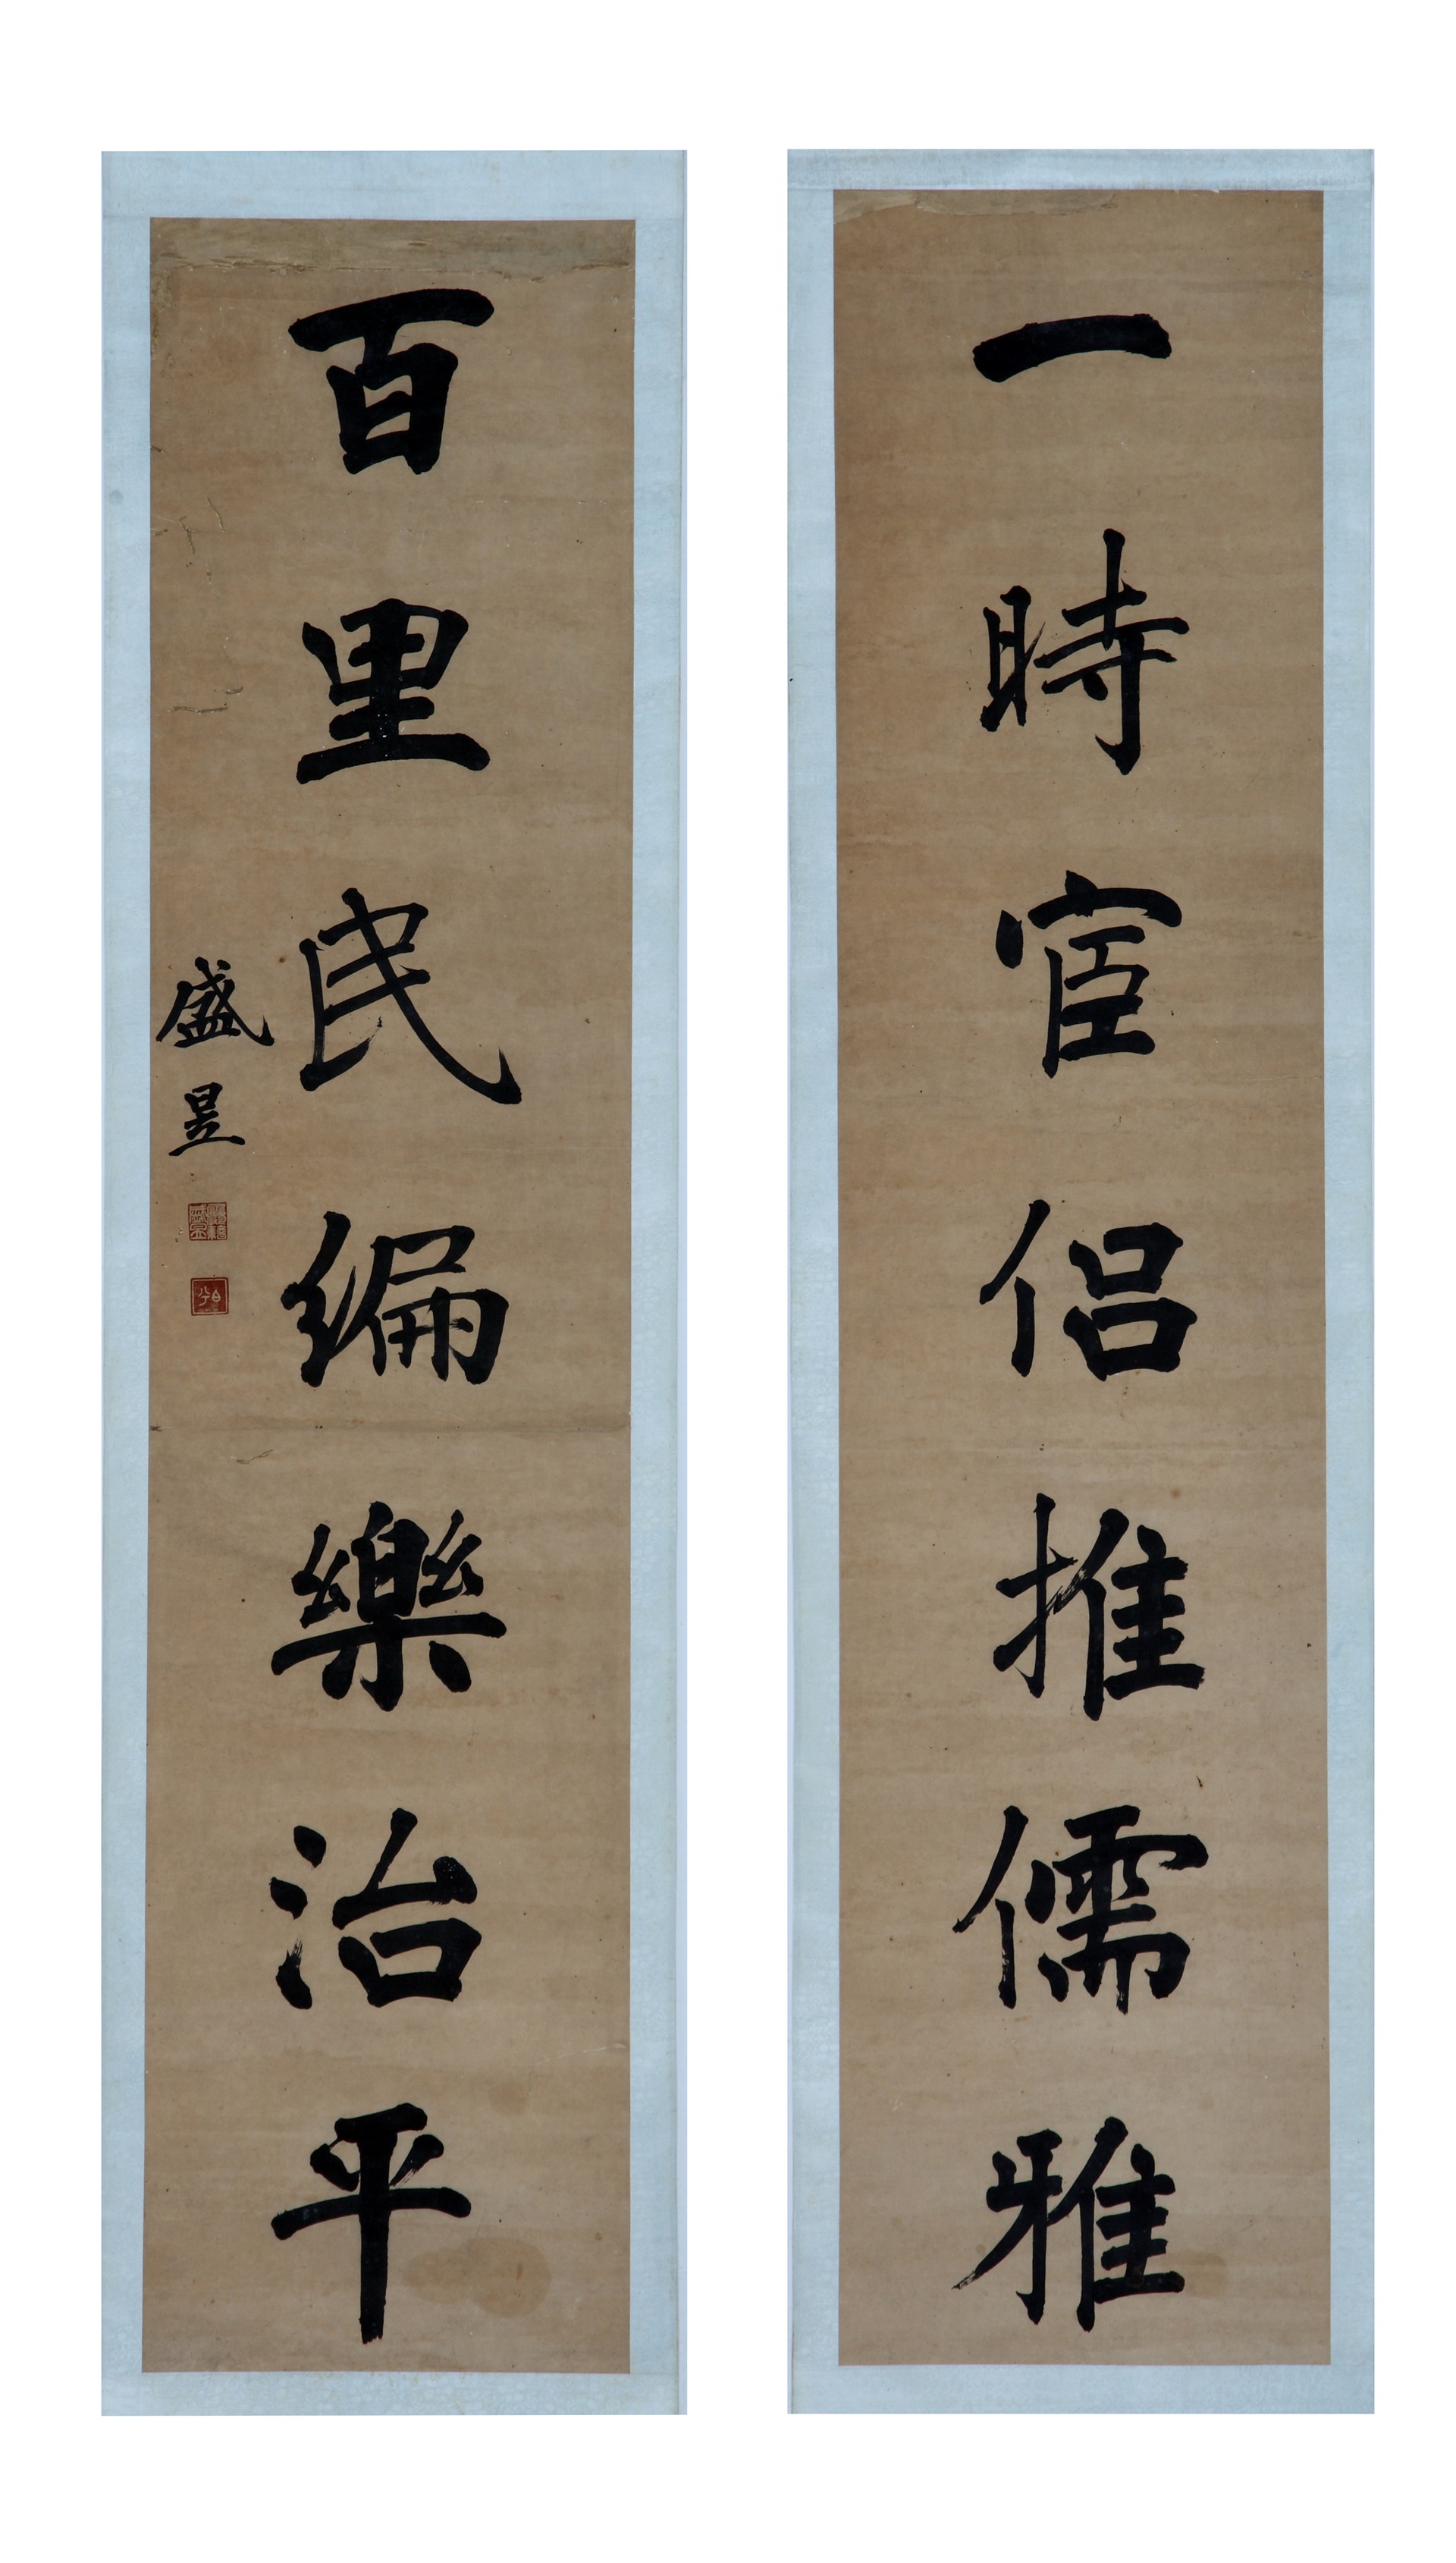 一時宦侶推儒雅
百里民編樂治平
盛昱